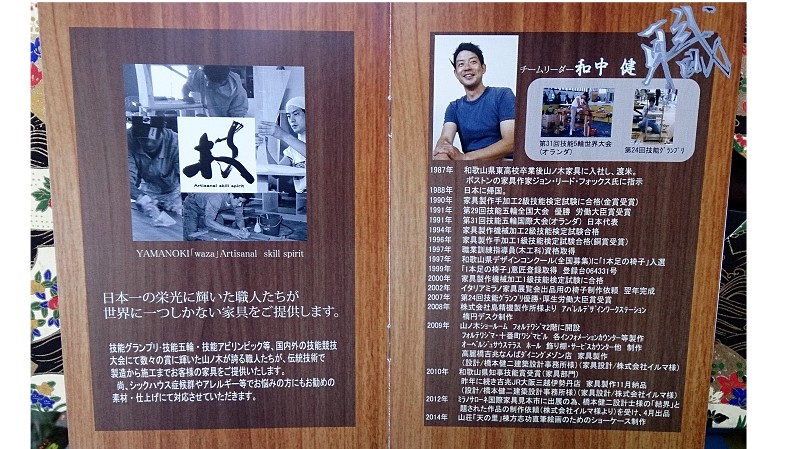 技
Artisanal skill spirit
YAMANOKI「waza」Artisanal skill spirit
日本一の栄光に輝いた職人たちが
世界に一つしかない家具をご提供します。
技能グランプリ・技能五輪・技能アビリンピック等、国内外の技能競技
大会にて数々の賞に輝いた山ノ木が誇る職人たちが、伝統技術で
製造から施工までお客様の家具をご提供いたします。
尚、シックハウス症候群やアレルギー等でお悩みの方にもお勧めの
素材・仕上げにて対応させていただきます。
職
チームリーダー 和中 健
第31回技能5輪世界大会
(オランダ)
第24回技能グランプリ
1987年 和歌山県東高校卒業後山ノ木家具に入社し、渡米。
ボストンの家具作家ジョン・リード・フォックス氏に指示
1988年 日本に帰国。
1990年 家具製作手加工2級技能検定試験に合格(金賞受賞)
1991年 第29回技能五輪全国大会 優勝 労働大臣賞受賞
1991年 第31回技能五輪国際大会(オランダ) 日本代表
1994年 家具製作機械加工2級技能検定試験合格
1996年 家具製作手加工1級技能検定試験合格(銅賞受賞)
1997年 職業訓練指導員(木工科)資格取得
1997年 和歌山県デザインコンクール(全国募集)に「1本足の椅子」入選
1999年 「1本足の椅子」意匠登録取得 登録台064331号
2000年 家具製作機械加工1級技能検定試験に合格
2002年 イタリアミラノ家具展覧会出品用の椅子制作依頼 翌年完成
2007年 第24回技能グランプリ優勝・厚生労働大臣賞受賞
2008年 株式会社島精機製作所様より アパレルデザインワークステーション
楕円デスク制作
2009年 山ノ木ショールーム フォルテワジマ2階に開設
フォルテワジマ・十番町ワジマビル 各インフォメーションカウンター等製作
オーベルジュサウステラス ホール 飾り棚・サービスカウンター他 制作
高麗橋吉兆なんばダイニングメゾン店 家具製作
(設計/橋本健二建築設計事務所様)(家具設計/株式会社イルマ様)
2010年 和歌山県知事技能賞受賞(家具部門)
昨年に続き吉兆JR大阪三越伊勢丹店 家具製作11月納品
(設計/橋本健二建築設計事務所様)(家具設計/株式会社イルマ様)
2012年 ミラノサローネ国際家具見本市に出展の為、橋本健二設計士様の「結界」と
題された作品の制作依頼(株式会社イルマ様より)を受け、4月出品
2014年 山荘「天の里」棟方志功直筆絵画のためのショーケース制作